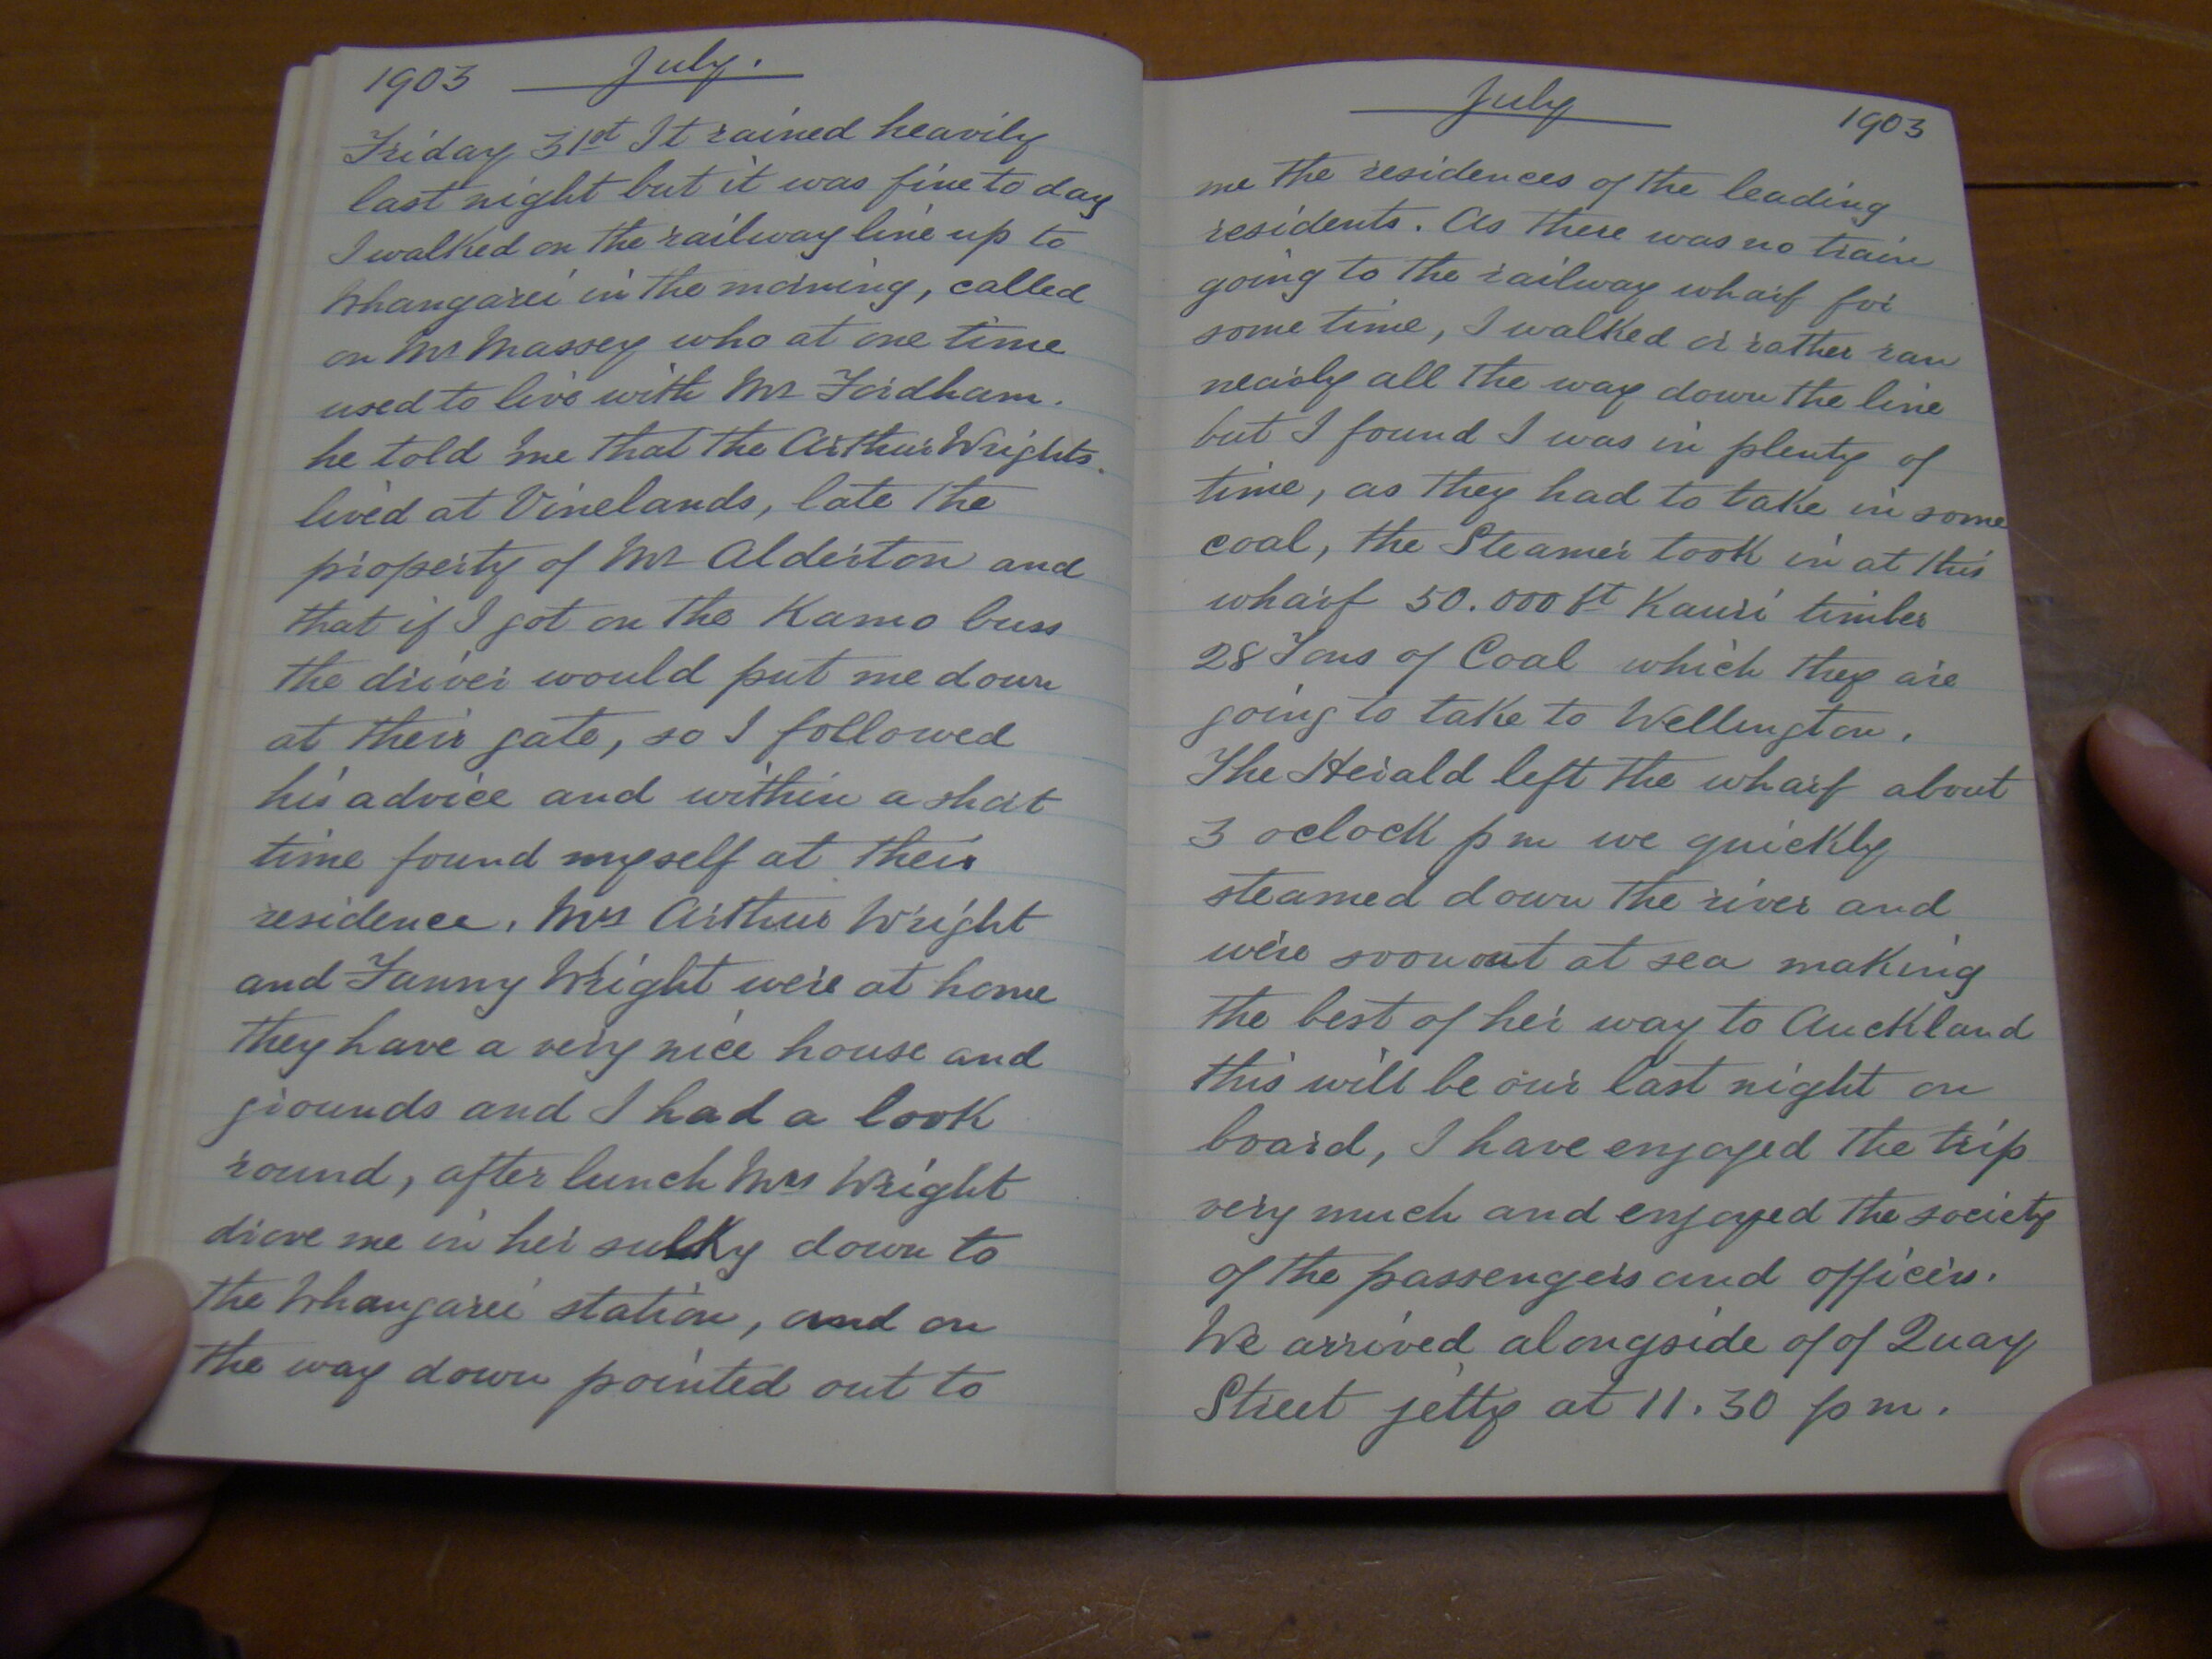 1903 July.
Friday 31st It rained heavily
last night but it was fine to day
I walked on the railway line up to
Whangarei in the morning, called
on Mr Massey who at one time
used to live with Mr Fordham.
he told me that the Arthur Wrights.
lived at Vinelands, late the
property of Mr Alderton and
that if I got on the Kamo buss
the driver would put me down
at their gate, so I followed
his advice and within a short
time found myself at their
residence. Mrs Arthur Wright
and Fanny Wright were at home
they have a very nice house and
grounds and I had a look
round, after lunch Mrs Wright
drove me in her sulky down to
the Whangarei station, and on
the way down pointed out to
July 1903
me the residences of the leading
residents. As there was no train
going to the railway wharf for
some time, I walked or rather ran
nearly all the way down the line
but I found I was in plenty of
time, as they had to take in some
coal, the Steamer took in at this
wharf 50.000 ft Kauri timber
28 Tons of Coal which they are
going to take to Wellington.
The Herald left the wharf about
3 oclock pm we quickly
steamed down the river and
were soon out at sea making
the best of her way to Auckland
this will be our last night on
board, I have enjoyed the trip
very much and enjoyed the society
of the passengers and officers.
We arrived alongside of of Quay
Street jetty at 11.30 pm.